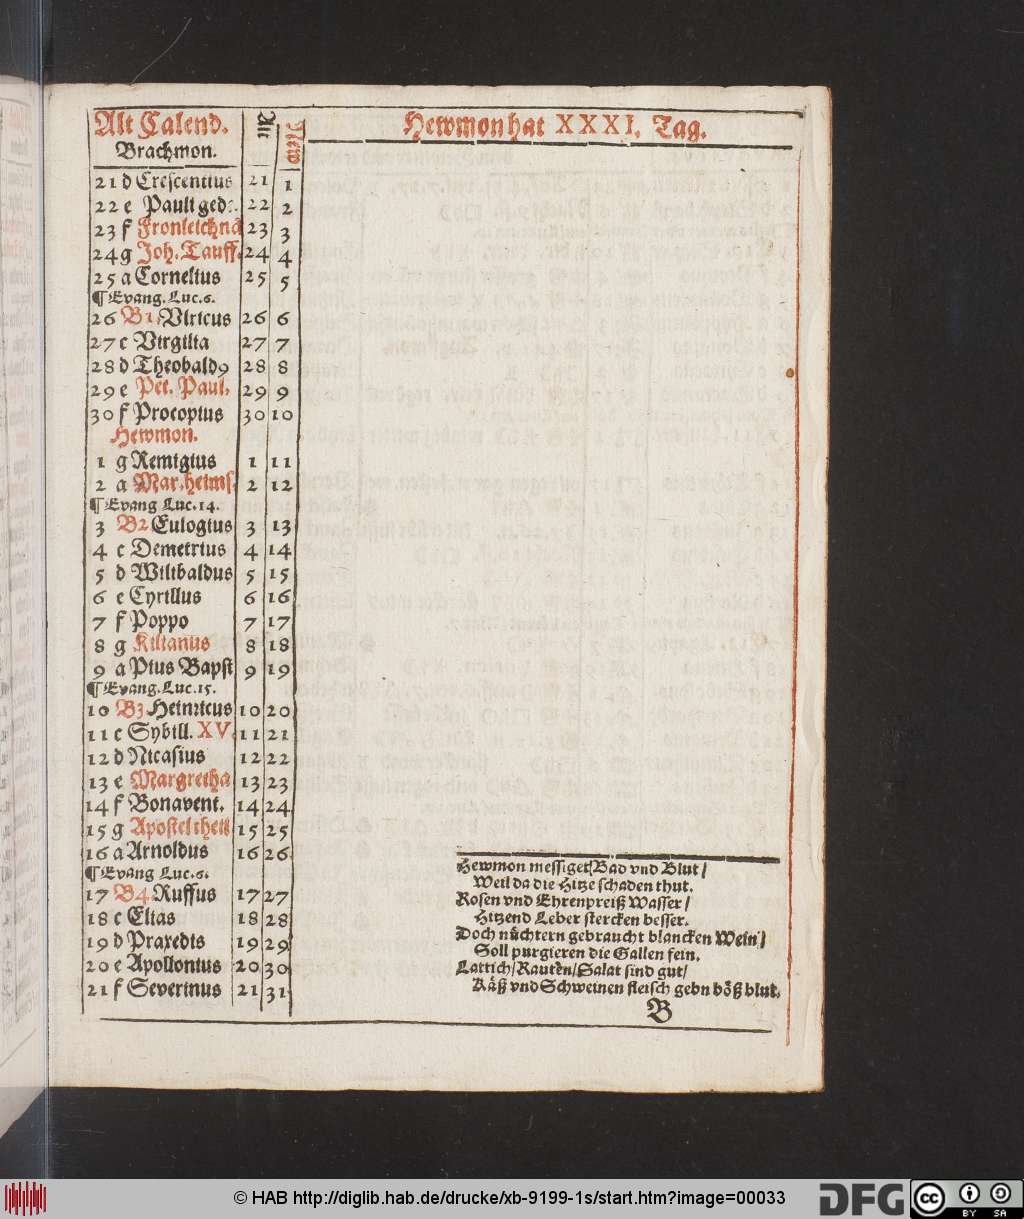 Alt Calend. Alt New Hewmon hat XXXI. Tag.
Brachmon.
21 d Crescentius 21 1
22 e Pauli ged: 22 2
23 f Fronleichnā 23 3
24 g Joh. Tauff. 24 4
25 a Cornelius 25 5
¶ Evang. Luc. 6.
26 B1. Vlricus 26 6
27 c Virgilia 27 7
28 d Theobald9 28 8
29 e Pet. Paul. 29 9
30 f Procopius 30 10
Hewmon.
1 g Remigius 1 11
2 a Mar. heims. 2 12
¶ Evang Luc. 14.
3 B2 Eulogius 3 13
4 c Demetrius 4 14
5 d Wilibaldus 5 15
6 e Cyrillus 6 16
7 f Poppo 7 17
8 g Kilianus 8 18
9 a Pius Bapst 9 19
¶ Evang. Luc. 15.
10 B3 Heinricus 10 20
11 c Sybill. XV. 11 21
12 d Nicasius 12 22
13 e Margretha 13 23
14 f Bonavent. 14 24
15 g Apostel theil 15 25
16 a Arnoldus 16 26
¶ Evang Luc. 6.
17 B4 Ruffus 17 27
18 c Elias 18 28
19 d Praxedis 19 29
20 e Apollonius 20 30
21 f Severinus 21 31
Hewmon messiget/Bad vnd Blut/
Weil da die Hitze schaden thut.
Rosen vnd Ehrenpreiß Wasser/
Hitzend Leber stercken besser.
Doch nüchtern gebraucht blancken Wein/
Soll purgieren die Gallen fein.
Lattich/Rauten/Salat sind gut/
Käß vnd Schweinen fleisch gebn böß blut.
B
© HAB http://diglib.hab.de/drucke/xb-9199-1s/start.htm?image=00033
DFG cc BY SA